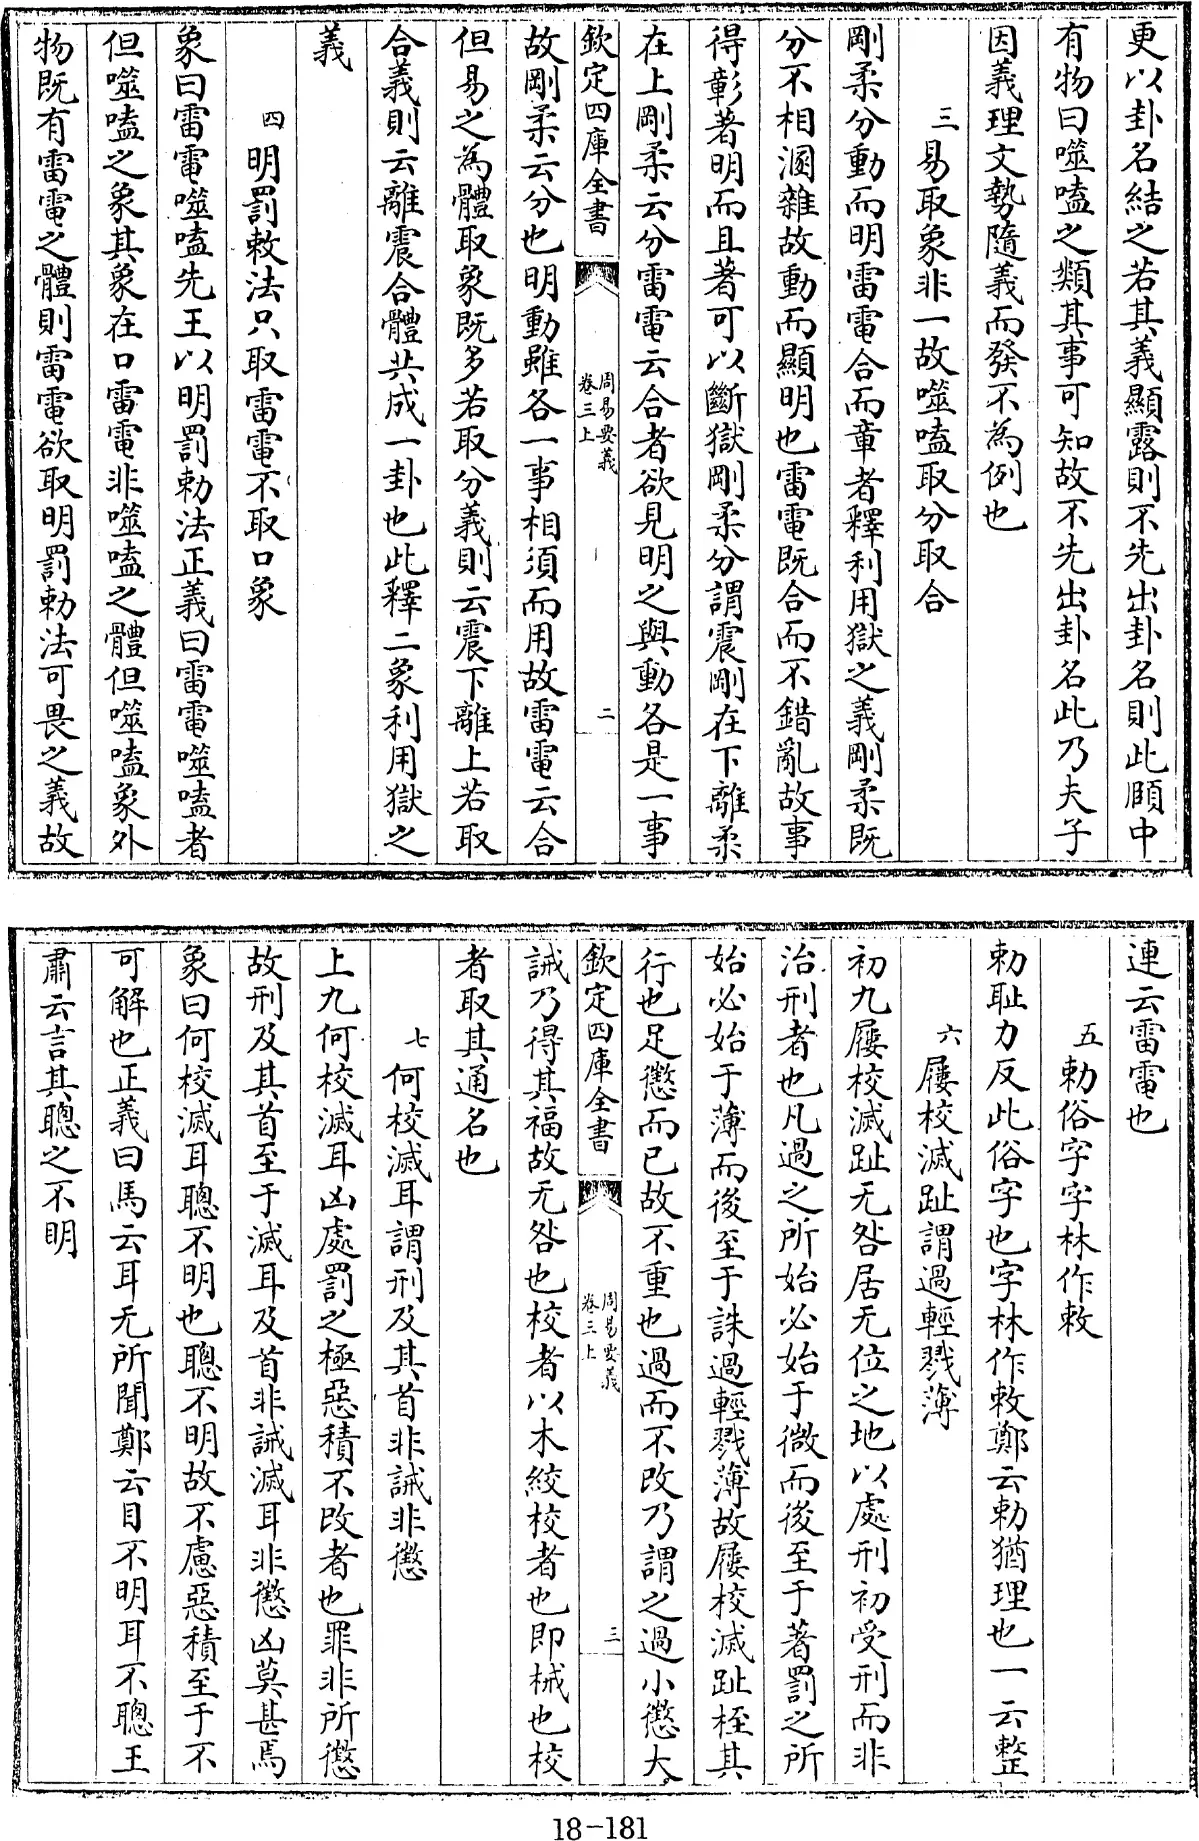 更以卦名結之若其義顯露則不先出卦名則此頤中
有物曰噬嗑之類其事可知故不先出卦名此乃夫子
因義理文勢隨義而發不為例也
三易取象非一故噬嗑取分取合
剛柔分動而明雷電合而章者釋利用獄之義剛柔既
分不相溷雜故動而顯明也雷電既合而不錯亂故事
得彰著明而且著可以斷獄剛柔分謂震剛在下離柔
在上剛柔云分雷電云合者欲見明之與動各是一事
欽定四庫全書
周易要義
卷三上
二
故剛柔云分也明動雖各一事相須而用故雷電云合
但易之為體取象既多若取分義則云震下離上若取
合義則云離震合體共成一卦也此釋二象利用獄之
義
四明罰敕法只取雷電不取口象
象曰雷電噬嗑先王以明罰勅法正義曰雷電噬嗑者
但噬嗑之象其象在口雷電非噬嗑之體但噬嗑象外
物既有雷電之體則雷電欲取明罰勅法可畏之義故
連云雷電也
五勅俗字字林作敕
勅耻力反此俗字也字林作敕鄭云勅猶理也一云整
六屨校滅趾謂過輕戮薄
初九屨校滅趾无咎居无位之地以處刑初受刑而非
治刑者也凡過之所始必始于微而後至于著罰之所
始必始于薄而後至于誅過輕戮薄故屨校滅趾桎其
行也足懲而已故不重也過而不改乃謂之過小懲大
欽定四庫全書
周易要義
卷三上
三
誡乃得其福故无咎也校者以木絞校者也即械也校
者取其通名也
七何校滅耳謂刑及其首非誡非懲
上九何校滅耳凶處罰之極惡積不改者也罪非所懲
故刑及其首至于滅耳及首非誡滅耳非懲凶莫甚焉
象曰何校滅耳聰不明也聰不明故不慮惡積至于不
可解也正義曰馬云耳无所聞鄭云目不明耳不聰王
肅云言其聰之不明
18-181